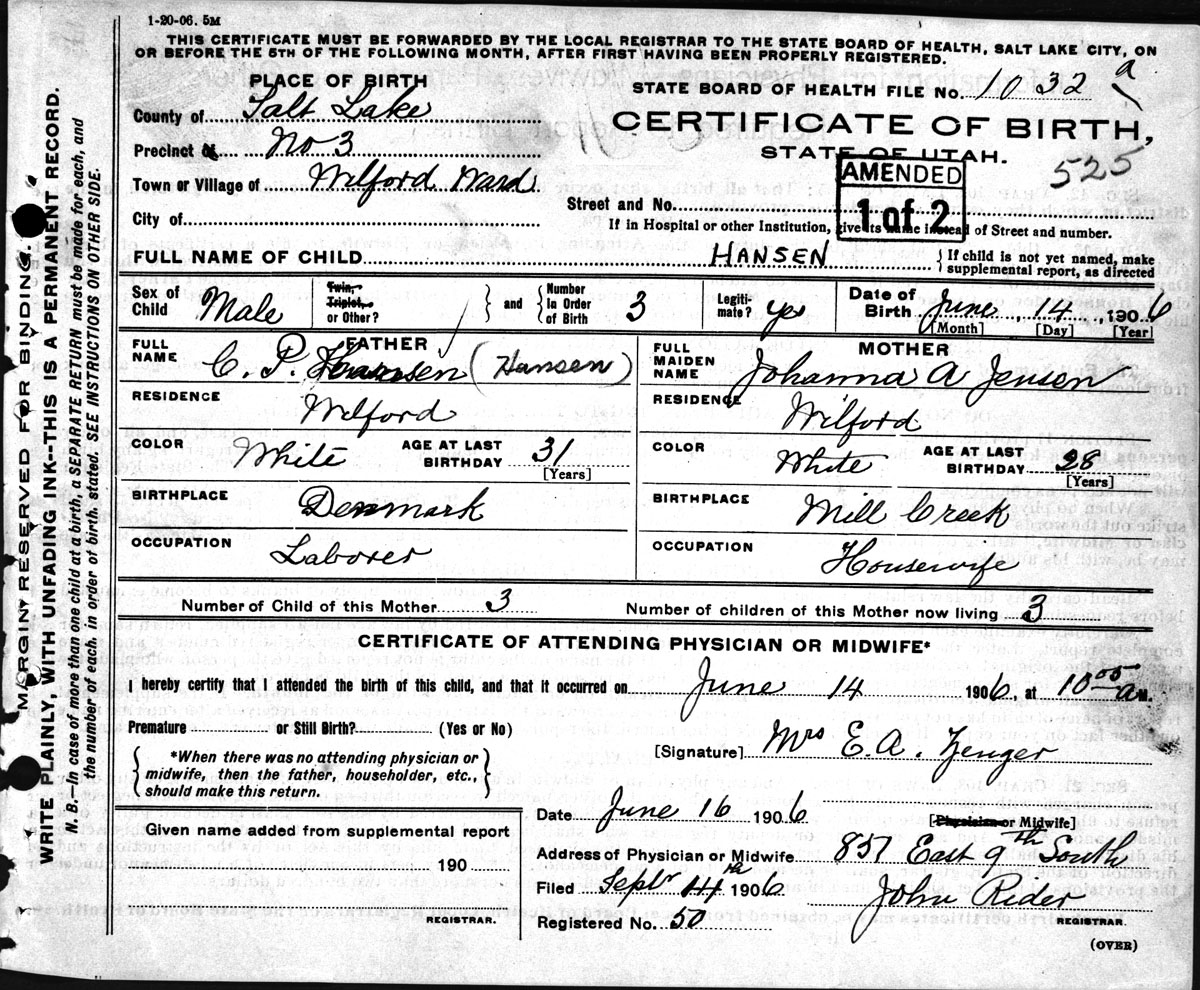 1-20-06. 5M
THIS CERTIFICATE MUST BE FORWARDED BY THE LOCAL REGISTRAR TO THE STATE BOARD OF HEALTH, SALT LAKE CITY, ON
OR BEFORE THE 5TH OF THE FOLLOWING MONTH, AFTER FIRST HAVING BEEN PROPERLY REGISTERED.
PLACE OF BIRTH
STATE BOARD OF HEALTH FILE No. 1032 a
County of Salt Lake
CERTIFICATE OF BIRTH,
Precinct No 3
STATE OF UTAH.
525
AMENDED
1 of 2
Town or Village of Wilford Ward
Street and No.
City of
If in Hospital or other Institution, give its name instead of Street and number.
FULL NAME OF CHILD HANSEN { If child is not yet named, make
supplemental report, as directed
Sex of Child Male
Twin, Triplet, or Other? } and { Number in Order of Birth 3
Legitimate? yes
Date of Birth June, 14, 1906
[Month] [Day] [Year]
FATHER
FULL NAME C. P. (Hansen)
RESIDENCE Wilford
COLOR White AGE AT LAST BIRTHDAY 31
[Years]
BIRTHPLACE Denmark
OCCUPATION Laborer
MOTHER
FULL MAIDEN NAME Johanna A Jensen
RESIDENCE Wilford
COLOR White AGE AT LAST BIRTHDAY 28
[Years]
BIRTHPLACE Mill Creek
OCCUPATION Housewife
Number of Child of this Mother 3 Number of children of this Mother now living 3
CERTIFICATE OF ATTENDING PHYSICIAN OR MIDWIFE*
I hereby certify that I attended the birth of this child, and that it occurred on June 14 1906, at 10 00 a M.
Premature or Still Birth? (Yes or No)
{ *When there was no attending physician or
midwife, then the father, householder, etc.,
should make this return. }
[Signature] Mrs E. A. Zenger
Date June 16 1906 [Physician or Midwife]
Given name added from supplemental report
190
REGISTRAR.
Address of Physician or Midwife 857 East 9th South
Filed Septr 14th 1906 John Rider
Registered No. 50 REGISTRAR.
(OVER)
MARGIN RESERVED FOR BINDING.
WRITE PLAINLY, WITH UNFADING INK--THIS IS A PERMANENT RECORD.
N. B.—In case of more than one child at a birth, a SEPARATE RETURN must be made for each, and
the number of each, in order of birth, stated. SEE INSTRUCTIONS ON OTHER SIDE.